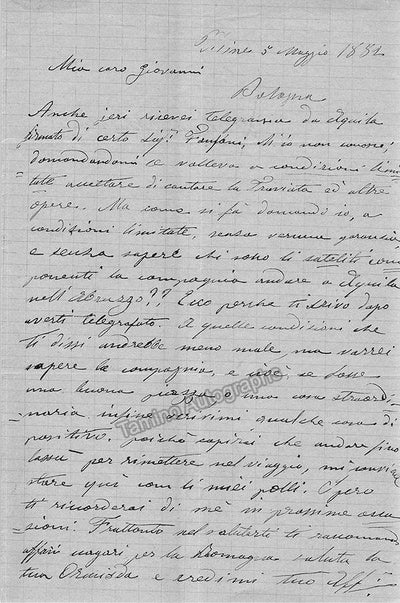 Udine 5 Maggio 1882
Mio caro Giovanni
Bologna
Anche jeri ricevei telegramma da Aquila
firmato di certo Sigr Fanfoni, che io non conosco,
domandandomi se volleva a condizioni limi
tate accettare di cantare la Traviata ed altre
opere. Ma come si fà domand'io, a
condizioni limitate, senza veruna garanzia
e senza sapere chi sono li satelliti com
ponenti la compagnia andare a Aquila
nell'Abruzzo?? Ecco perche ti scrivo dopo
averti telegrafato. A quelle condizioni che
ti dissi andrebbe meno male, ma vorrei
sapere la compagnia, e cosi se fosse
una buona piazza e una cosa straordi
naria infine scrivimi qualche cosa di
positivo, poichè capirai che andare fino
lassù per rimettere nel viaggio, mi convien
stare quì con li miei polli. Spero
ti ricorderai di mè in prossime occa
sioni. Frattanto nel salutarti ti raccomando
affari magari per la Romagna saluta la
tua Ormisda e credimi tuo Aff:
Tamino Autographs